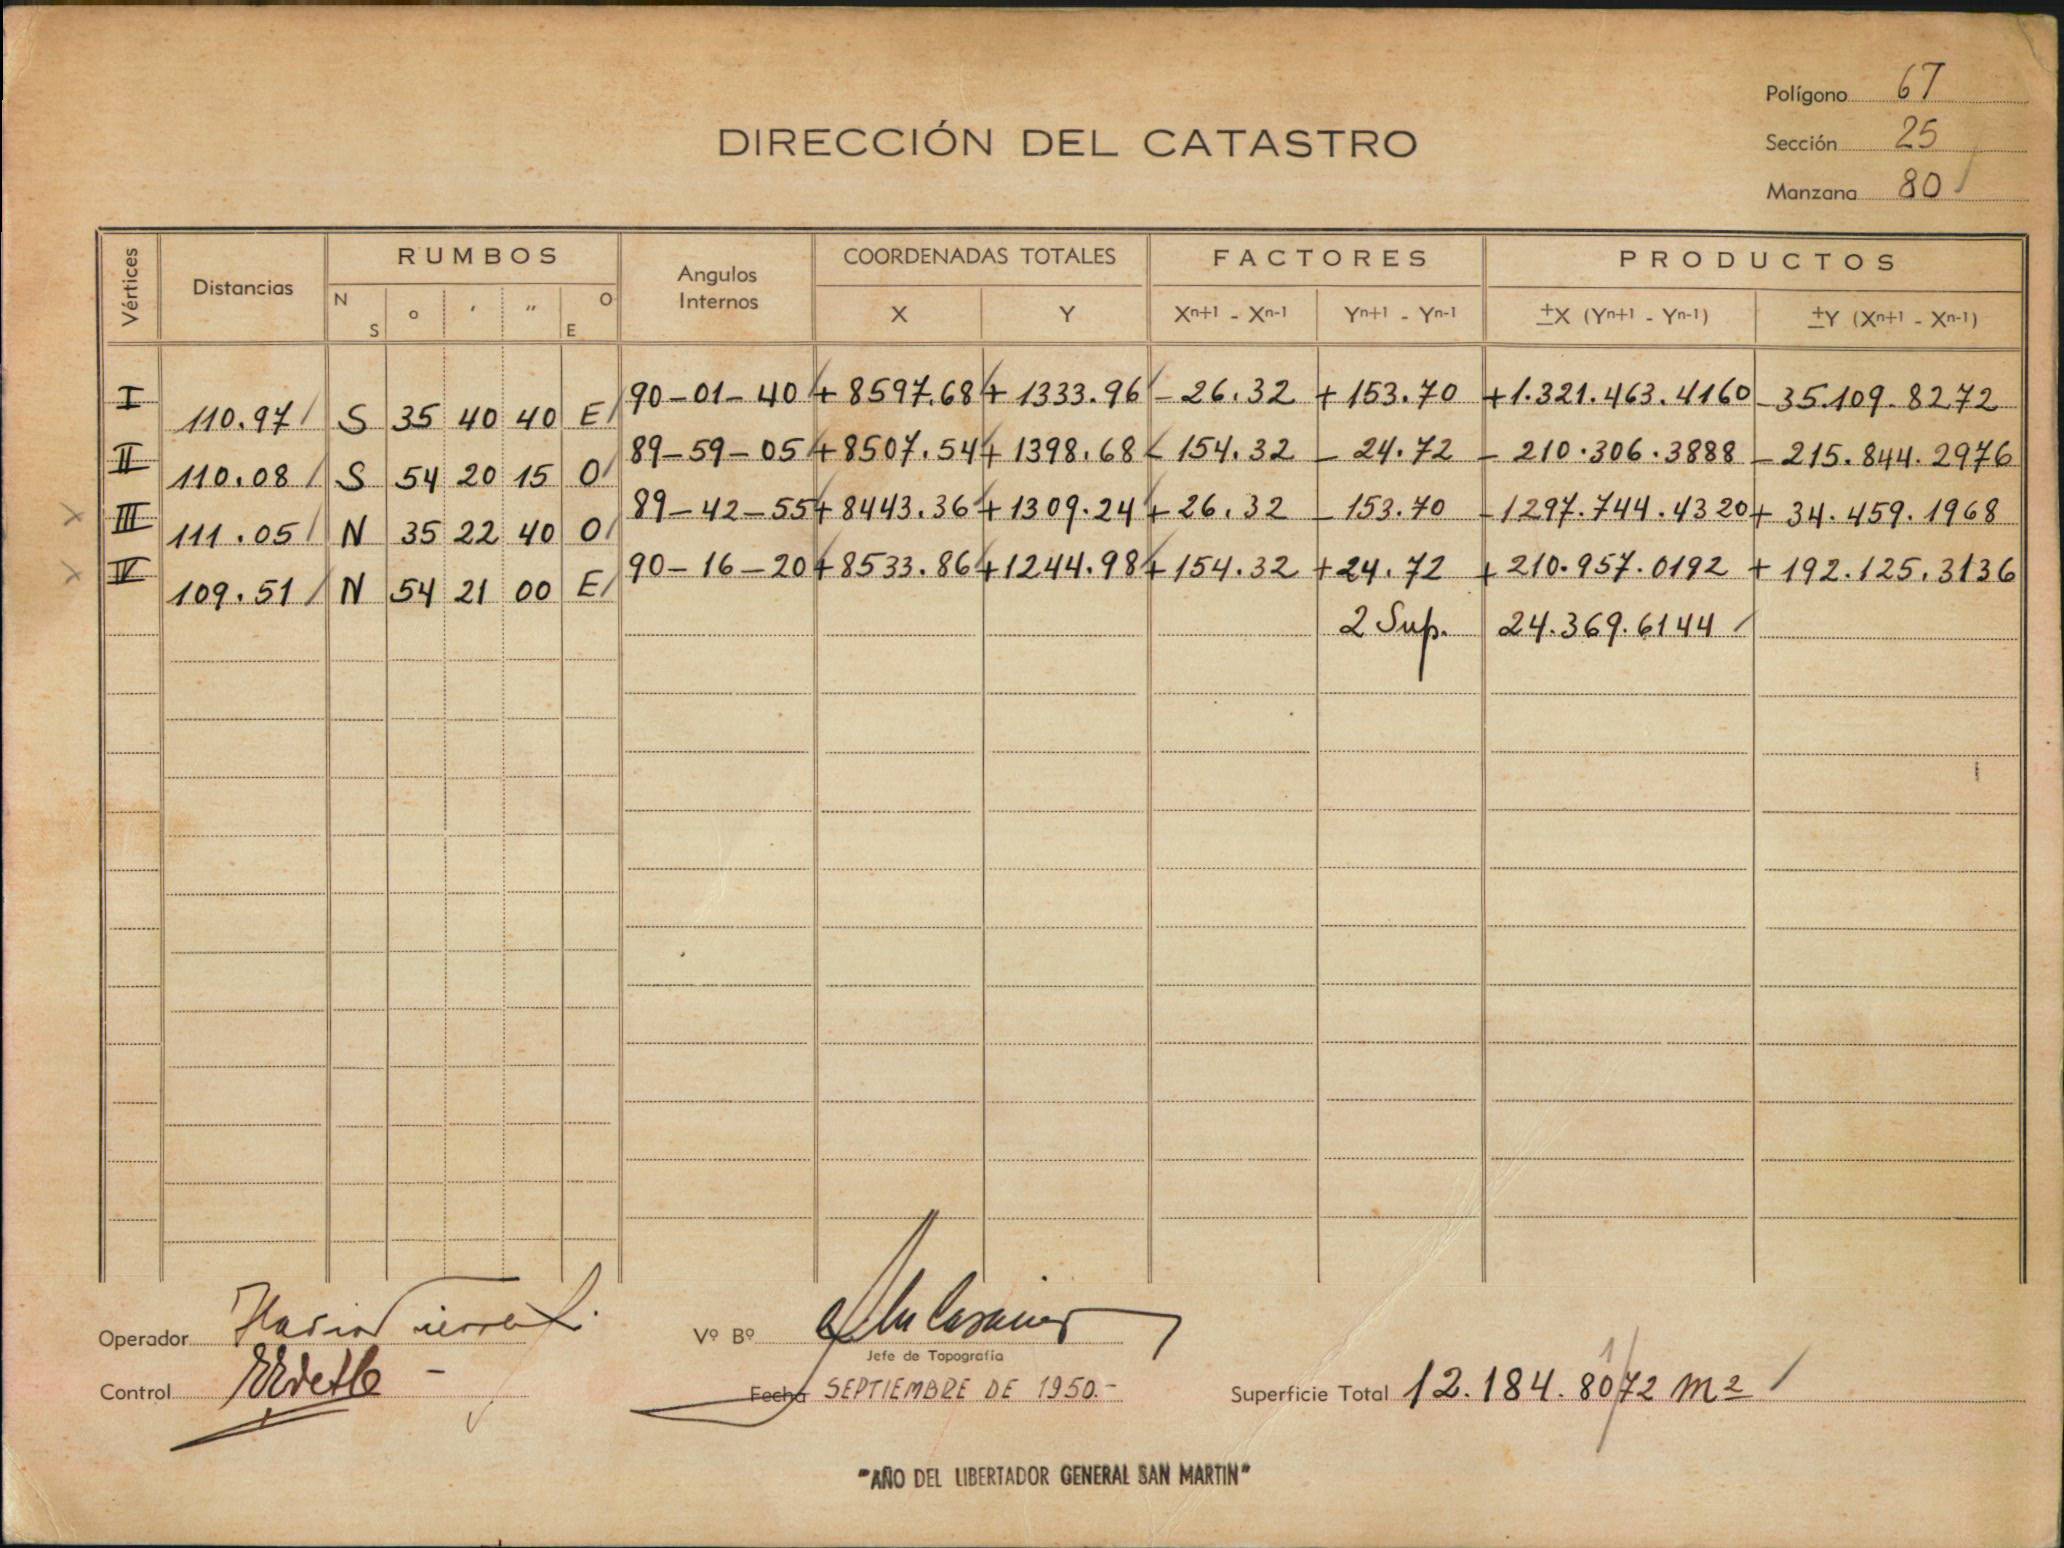 Polígono 67
DIRECCIÓN DEL CATASTRO
Sección 25
Manzana 80
Vértices Distancias RUMBOS Angulos Internos COORDENADAS TOTALES FACTORES PRODUCTOS
N S ° ' " O E X Y Xn+1 - Xn-1 Yn+1 - Yn-1 ±X (Yn+1 - Yn-1) ±Y (Xn+1 - Xn-1)
I 90-01-40 + 8597.68 + 1333.96 - 26.32 + 153.70 + 1.321.463.4160 - 35.109.8272
110.97 S 35 40 40 E
II 89-59-05 + 8507.54 + 1398.68 - 154.32 - 24.72 - 210.306.3888 - 215.844.2976
110.08 S 54 20 15 O
III 89-42-55 + 8443.36 + 1309.24 + 26.32 - 153.70 - 1297.744.4320 + 34.459.1968
111.05 N 35 22 40 O
IV 90-16-20 + 8533.86 + 1244.98 + 154.32 + 24.72 + 210.957.0192 + 192.125.3136
109.51 N 54 21 00 E
2 Sup. 24.369.6144
Operador
Vº Bº
Jefe de Topografía
Control
Fecha SEPTIEMBRE DE 1950.-
Superficie Total 12.184.8072 m2
"AÑO DEL LIBERTADOR GENERAL SAN MARTIN"